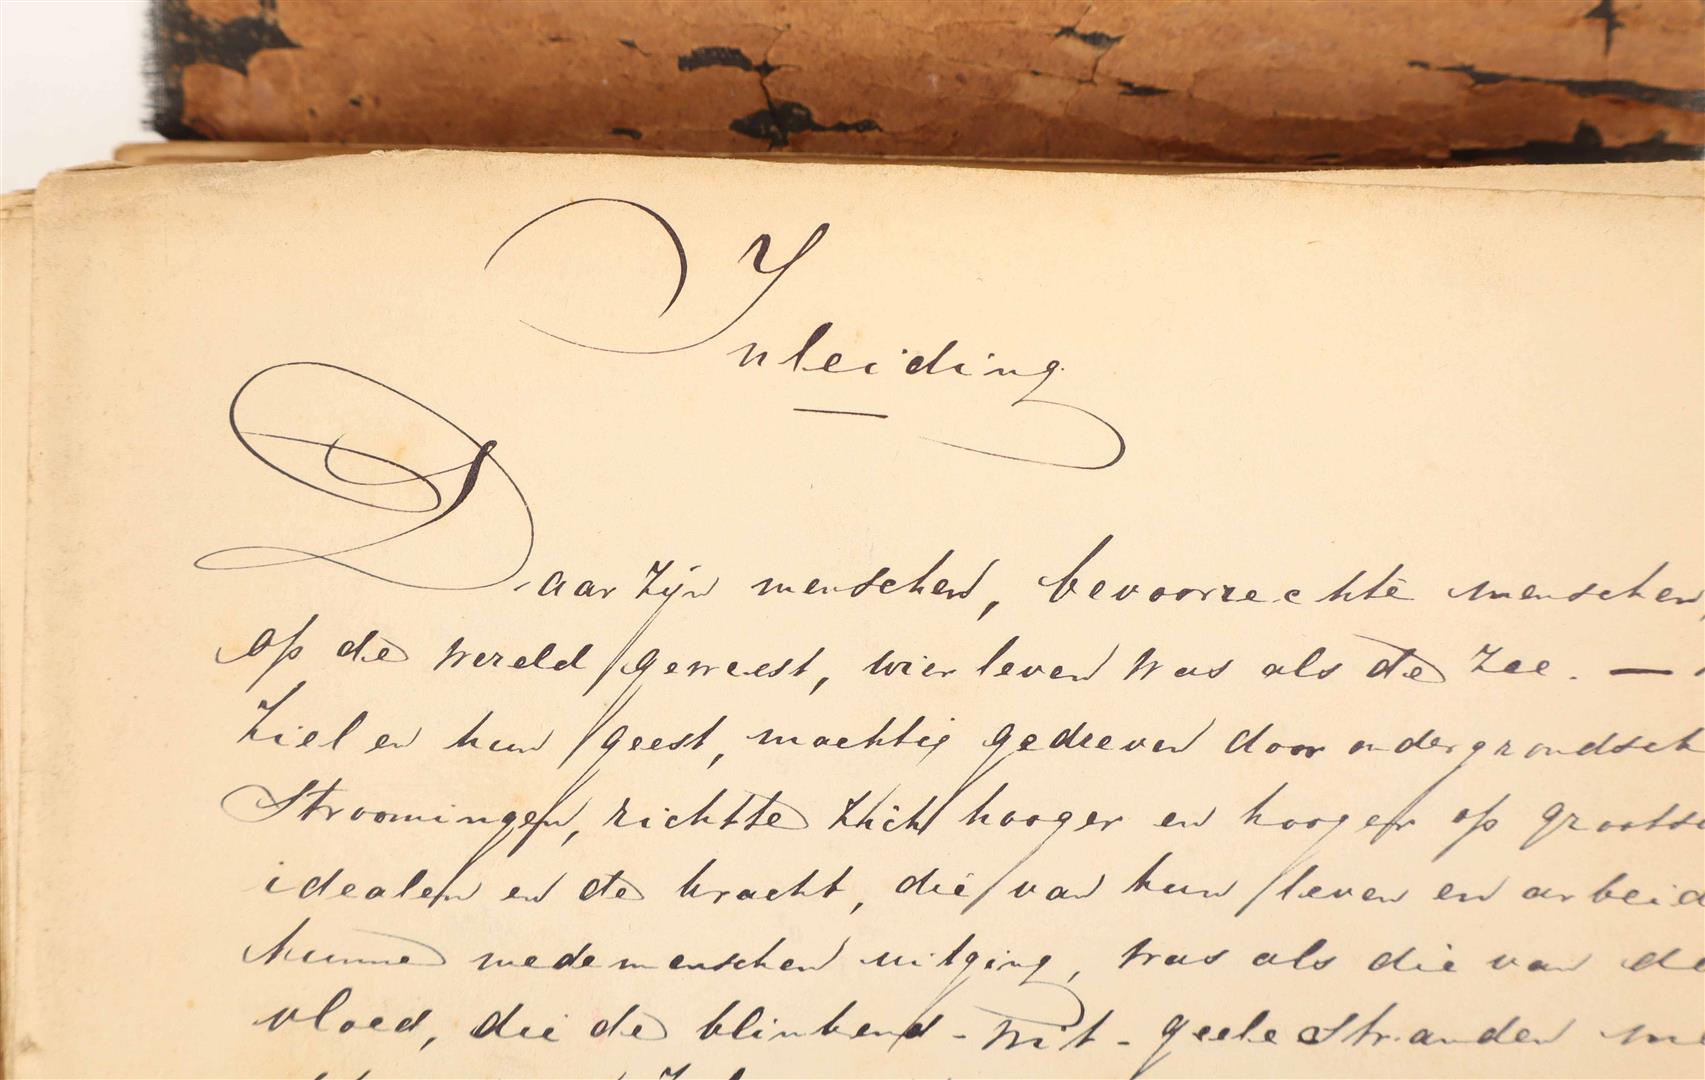 Inleiding
Daar zijn menschen, bevoorrechte menschen,
op de wereld geweest, wier leven was als de zee. —
Ziel en hun geest, machtig gedreven door ondergrondsch
Stroomingen, richtte zich hooger en hooger op groots
idealen en de kracht, die van hun leven en arbeid
hunne medemenschen uitging, was als die van de
vloed, die de blinkend-wit-geele stranden me